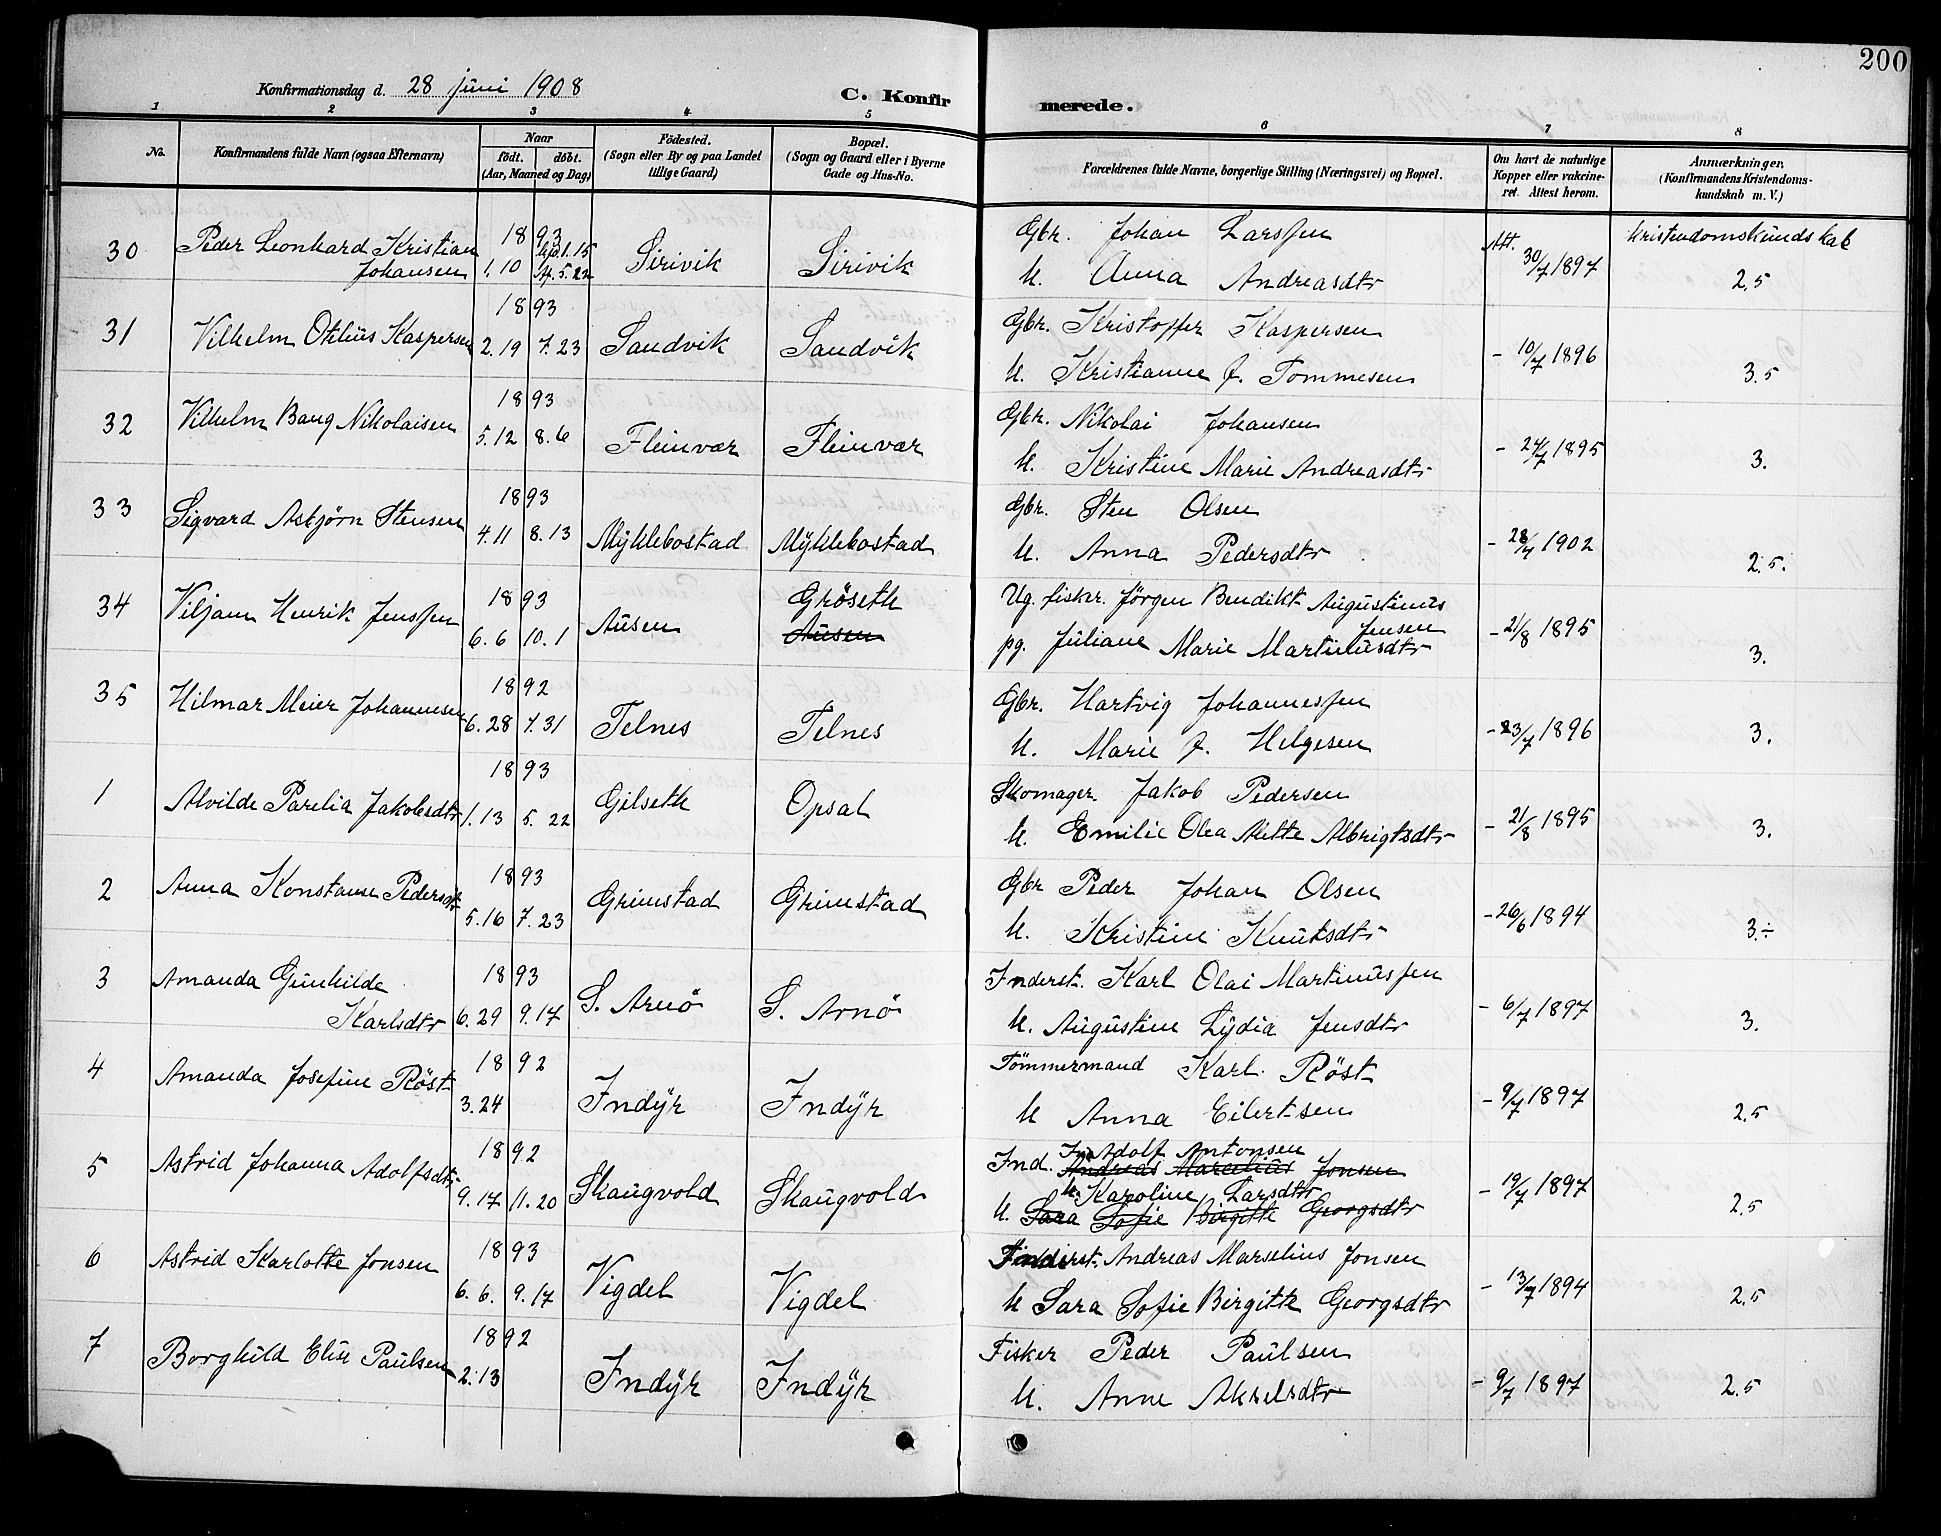 200
Konfirmationsdag d. 28 juni 1908
C. Konfirmerede.
1 2 3 4 5 6 7 8
No. Konfirmandens fulde Navn (ogsaa Efternavn) Naar født. døbt. (Aar, Maaned og Dag) Födested. (Sogn eller By og paa Landet tillige Gaard) Bopæl. (Sogn og Gaard eller i Byerne Gade og Hus-No. Forældrenes fulde Navne, borgerlige Stilling (Næringsvei) og Bopæl. Om havt de naturlige Kopper eller vakcineret. Attest herom. Anmærkninger. (Konfirmandens Kristendomskundskab m. V.)
30 Peder Leonhard Kristian 1893 hjd. 1.15 Gbr. Johan Larssen Att. Kristendomskundskab
Johansen 1.10 5.22 Sirivik Sirivik h. Anna Andreasdtr 30/7 1897 2.5
31 Vilhelm Otilius Kaspersen 1893 Gbr. Kristoffer Kaspersen
2.19 7.23 Sandvik Sandvik h. Kristianne f. Tommesen - 10/7 1896 3.5
32 Vilhelm Baug Nikolaisen 1893 Gbr. Nikolai Johansen
5.12 8.6 Fleinvær Fleinvær h. Kristine Marie Andreasdtr - 24/7 1895 3.
33 Sigvard Asbjørn Stensen 1893 Gbr. Sten Olsen
4.11 8.13 Myklebostad Myklebostad h. Anna Pedersdtr - 28/7 1902 2.5.
34 Viljam Henrik Jenssen 1893 Gröseth Ug. fisker. Jörgen Bendikt Augustinus Jensen
6.6 10.1 Ausen Ausen pg. Juliane Marie Martinusdtr - 21/8 1895 3.
35 Hilmar Meier Johannesen 1892 Gbr. Hartvig Johannessen
6.28 7.31 Telnes Telnes h. Marie f. Helgesen - 23/7 1896 3.
1 Alvilde Parelia Jakobsdtr 1893 Skomager. Jakob Pedersen
1.13 5.22 Gilseth Opsal h. Emilie Olea Mette Albrigtsdtr - 21/8 1895 3.
2 Anna Konstanse Pedersdtr 1893 Gbr Peder Johan Olsen
5.16 7.23 Grimstad Grimstad h. Kristine Knutsdtr - 26/6 1894 3.÷
3 Amanda Gunhilde 1893 Inderst. Karl Olai Martinussen
Karlsdtr 6.29 9.17 S. Arnö S. Arnö h. Augustine Lydia Jensdtr - 6/7 1897 3.
4 Amanda Josefine Röst 1892 Tömmermand Karl Röst
3.24 Indyr Indyr h Anna Eilertsen - 9/7 1897 2.5
5 Astrid Johanna Adolfsdtr 1892 In Adolf Antonsen
Ind. Andreas Marcelius Jonsen
h. Karoline Larsdtr
9.17 11.20 Skaugvold Skaugvold h. Sara Sofie Birgitte Georgsdtr - 19/7 1897 2.5
6 Astrid Karlotte Jonsen 1893 Inderst. Andreas Marselius Jonsen
6.6. 9.17 Vigdel Vigdel h Sara Sofie Birgitte Georgsdtr - 13/7 1894 2.5
7 Borghild Elise Paulsen 1892 Fisker Peder Paulsen
2.13 Indyr Indyr h. Anne Akselsdtr - 9/7 1897 2.5